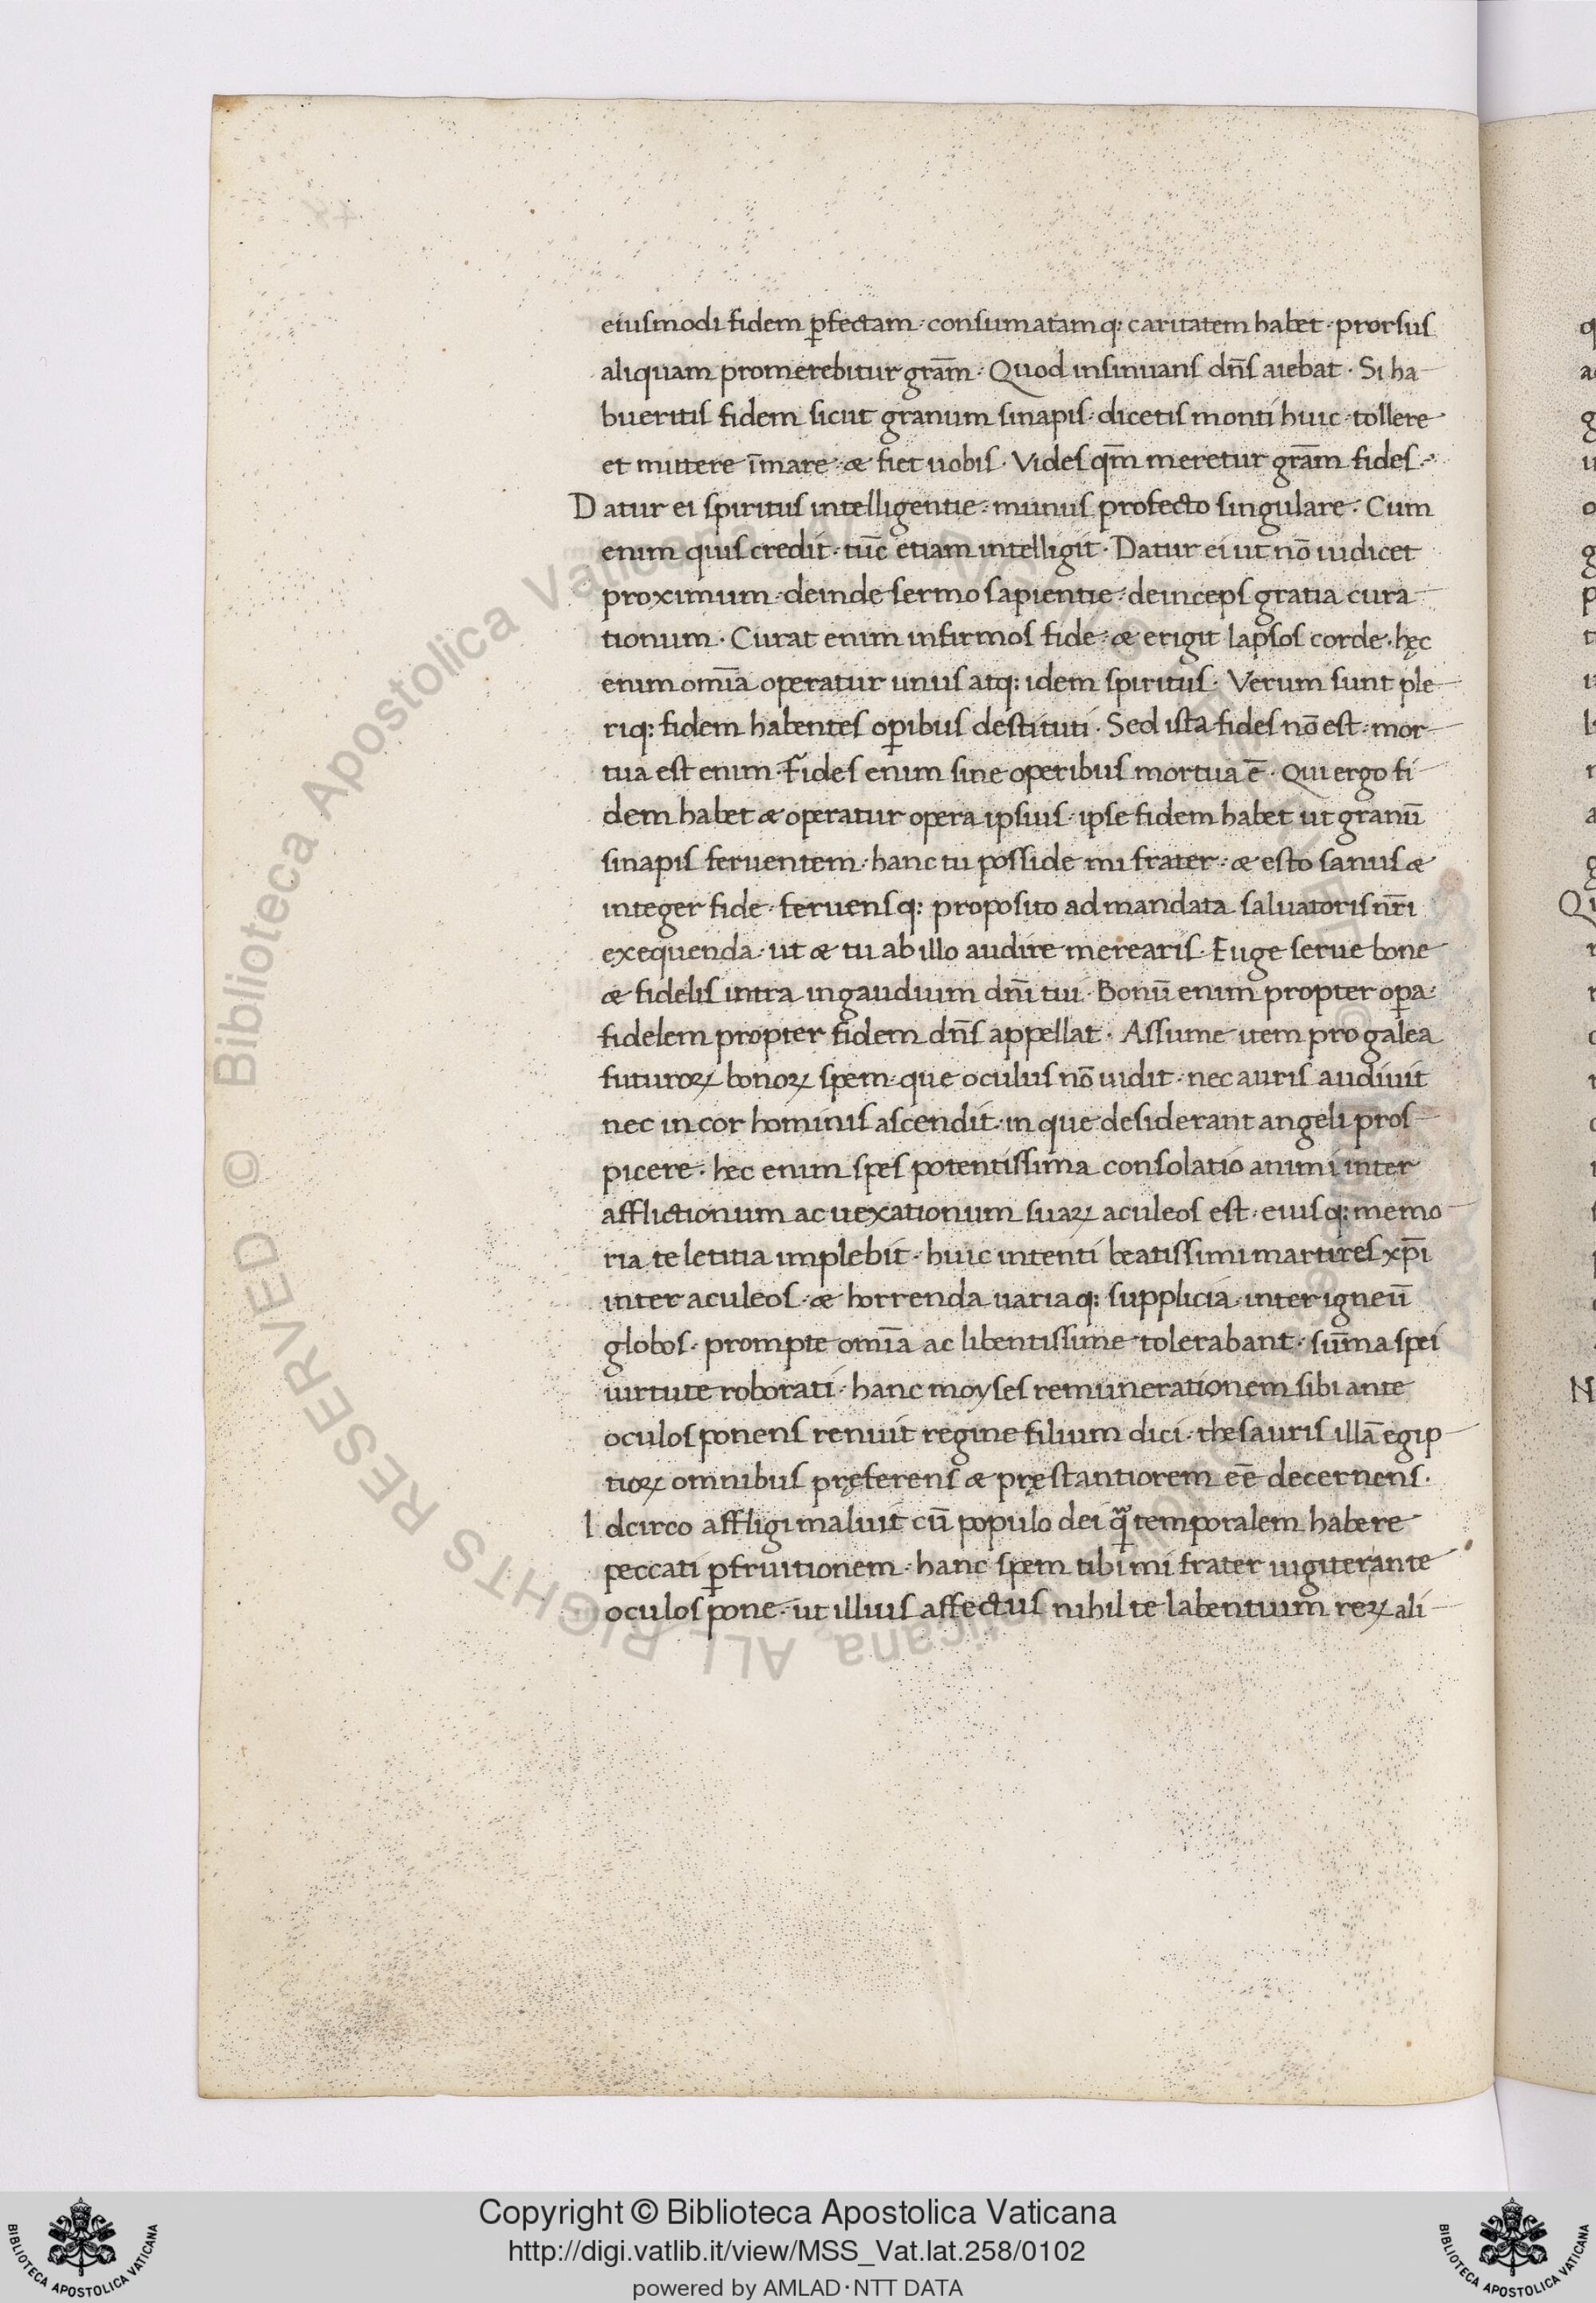 eiusmodi fidem ꝑfectam · consumatamq: caritatem habet · prorsus
aliquam promerebitur gr̄am · Quod insinuans dn̄s aiebat · Si ha
bueritis fidem sicut granum sinapis · dicetis monti huic · tollere
et mittere ī mare · & fiet uobis · Vides qm̄ meretur gr̄am fides ·
Datur ei spiritus intelligentie · munus profecto singulare · Cum
enim quis credit · tūc etiam intelligit · Datur ei ut nō iudicet
proximum · deinde sermo sapientie · deinceps gratia cura
tionum · Curat enim infirmos fide · & erigit lapsos corde · hęc
enim omīa operatur unus atq: idem spiritus · Verum sunt ple
riq: fidem habentes oꝑibus destituti · Sed ista fides nō est · mor
tua est enim · Fides enim sine operibus mortua ē · Qui ergo fi
dem habet & operatur opera ipsius · ipse fidem habet ut granū
sinapis feruentem · hanc tu posside mi frater · & esto sanus &
integer fide · feruensq: proposito ad mandata saluatoris nr̄i
exequenda · ut & tu ab illo audire merearis · Euge serue bone
& fidelis intra in gaudium dn̄i tui · Bonū enim propter oꝑa ·
fidelem propter fidem dn̄s appellat · Assume item pro galea
futuroꝝ bonoꝝ spem · que oculus nō uidit · nec auris audiuit
nec in cor hominis ascendit · in que desiderant angeli pros
picere · hec enim spes potentissima consolatio animi inter
afflictionum ac uexationum suaꝝ aculeos est · eiusq: memo
ria te letitia implebit · huic intenti beatissimi martires xp̄i
inter aculeos · & horrenda uariaq: supplicia · inter igneū
globos · prompte omīa ac libentissime tolerabant · sūma spei
uirtute roborati · hanc moyses remunerationem sibi ante
oculos ponens renuit regine filium dici · thesauris illā egip
tioꝝ omnibus pręferens & pręstantiorem eē decernens ·
Idcirco affligi maluit cū populo dei ꝙ̃ temporalem habere
peccati ꝑfruitionem · hanc spem tibi mi frater iugiter ante
oculos pone · ut illius affectus nihil te labentium reꝝ ali
Copyright © Biblioteca Apostolica Vaticana
http://digi.vatlib.it/view/MSS_Vat.lat.258/0102
powered by AMLAD·NTT DATA